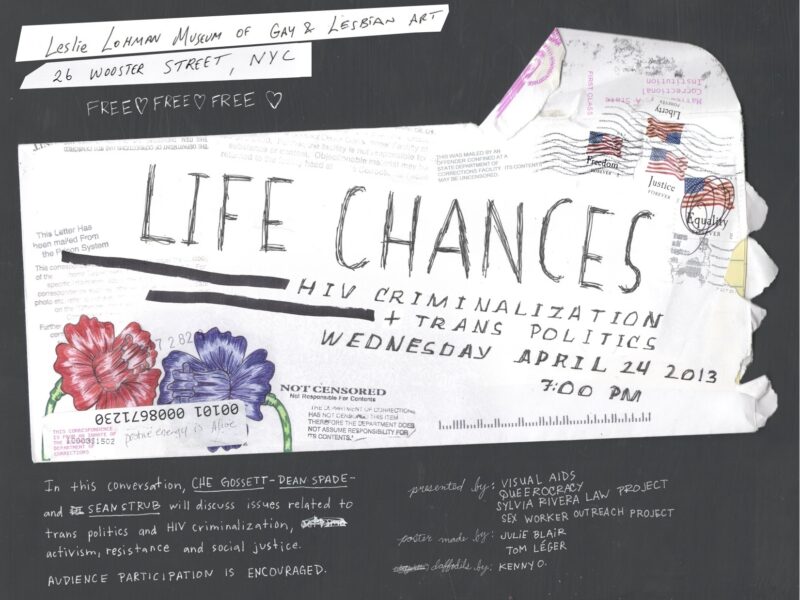 Leslie Lohman Museum of Gay & Lesbian Art
26 Wooster Street, NYC
FREE♡FREE♡FREE ♡
THIS WAS MAILED BY AN
OFFENDER CONFINED AT A
STATE DEPARTMENT OF
CORRECTIONS FACILITY. ITS CONTENTS
MAY BE UNCENSORED.
FIRST CLASS
Correctional
Institution
Liberty
FOREVER
Freedom
FOREVER
Justice
FOREVER
Equality
FOREVER
This Letter Has
been mailed From
the Prison System
LIFE CHANCES
HIV CRIMINALIZATION
+ TRANS POLITICS
WEDNESDAY APRIL 24 2013
7:00 PM
NOT CENSORED
Not Responsible For Contents
THE DEPARTMENT OF CORRECTIONS
HAS NOT CENSORED THIS ITEM
THEREFORE THE DEPARTMENT DOES
NOT ASSUME RESPONSIBILITY FOR
ITS CONTENTS.
00101 0008671230
THIS CORRESPONDENCE
IS FROM AN INMATE OF
DEPARTMENT OF
CORRECTIONS
positive energy is Alive
In this conversation, CHE GOSSETT-DEAN SPADE-
and SEAN STRUB will discuss issues related to
trans politics and HIV criminalization,
activism, resistance and social justice.
AUDIENCE PARTICIPATION IS ENCOURAGED.
presented by: VISUAL AIDS
QUEEROCRACY
SYLVIA RIVERA LAW PROJECT
SEX WORKER OUTREACH PROJECT
poster made by: JULIE BLAIR
TOM LÉGER
daffodils by: KENNY O.